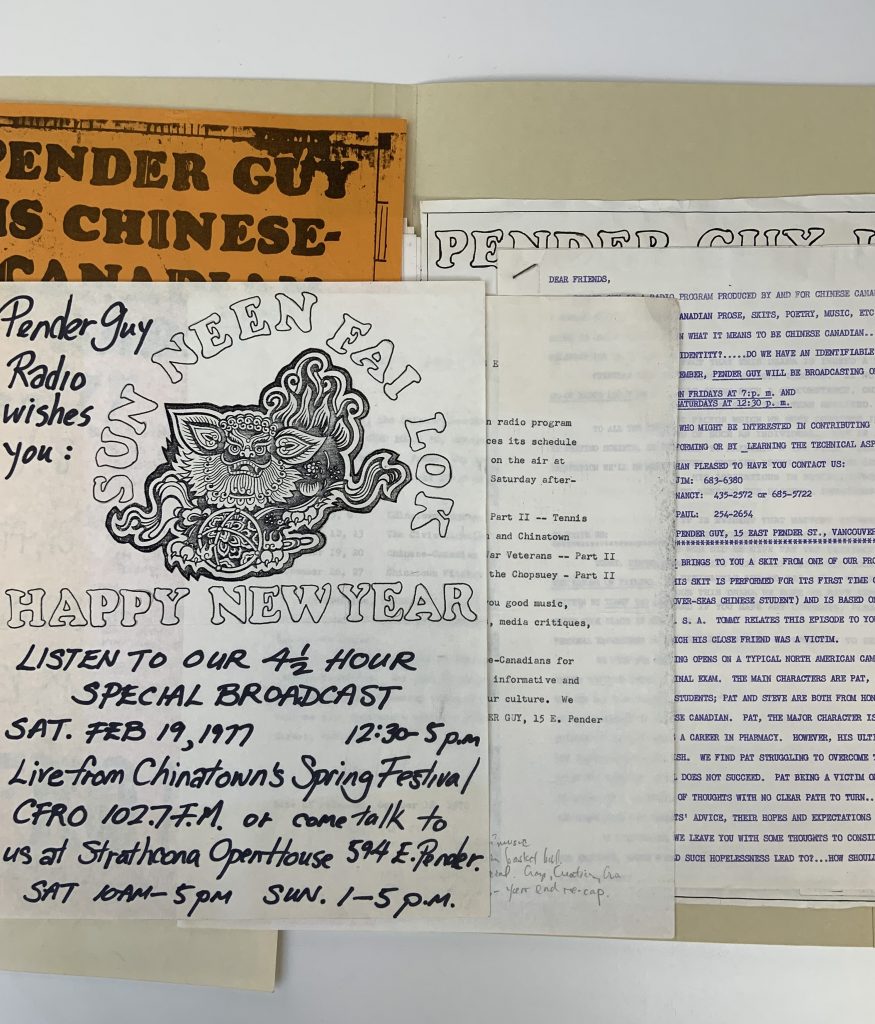 PENDER GUY
IS CHINESE-
CANADIAN
Pender Guy
Radio
wishes
you:
SUN NEEN FAI LOK
HAPPY NEW YEAR
LISTEN TO OUR 4½ HOUR
SPECIAL BROADCAST
SAT. FEB 19, 1977 12:30-5 p.m
Live from Chinatown's Spring Festival
CFRO 102.7 F.M. or come talk to
us at Strathcona Open House 594 E. Pender.
SAT 10AM-5PM SUN. 1-5 P.M.
E
radio program
ces its schedule
on the air at
Saturday after-
Part II -- Tennis
and Chinatown
War Veterans -- Part II
the Chopsuey - Part II
you good music,
, media critiques,
e-Canadians for
informative and
ur culture. We
ER GUY, 15 E. Pender
music
basket ball.
- year end re-cap.
PENDER GUY
DEAR FRIENDS,
RADIO PROGRAM PRODUCED BY AND FOR CHINESE CANA
ANADIAN PROSE, SKITS, POETRY, MUSIC, ETC
N WHAT IT MEANS TO BE CHINESE CANADIAN..
IDENTITY?.....DO WE HAVE AN IDENTIFIABLE
EMBER, PENDER GUY WILL BE BROADCASTING O
ON FRIDAYS AT 7:p. m. AND
SATURDAYS AT 12:30 p. m.
WHO MIGHT BE INTERESTED IN CONTRIBUTING
FORMING OR BY _LEARNING THE TECHNICAL ASP
HAN PLEASED TO HAVE YOU CONTACT US:
JIM: 683-6380
NANCY: 435-2572 or 685-5722
PAUL: 254-2654
PENDER GUY, 15 EAST PENDER ST., VANCOUVER
BRINGS TO YOU A SKIT FROM ONE OF OUR PRO
HIS SKIT IS PERFORMED FOR ITS FIRST TIME
OVER-SEAS CHINESE STUDENT) AND IS BASED O
. S. A. TOMMY RELATES THIS EPISODE TO YO
ICH HIS CLOSE FRIEND WAS A VICTIM.
ING OPENS ON A TYPICAL NORTH AMERICAN CAM
INAL EXAM. THE MAIN CHARACTERS ARE PAT,
STUDENTS; PAT AND STEVE ARE BOTH FROM HON
SE CANADIAN. PAT, THE MAJOR CHARACTER IS
A CAREER IN PHARMACY. HOWEVER, HIS ULTI
SH. WE FIND PAT STRUGGLING TO OVERCOME
DOES NOT SUCCEED. PAT BEING A VICTIM O
OF THOUGHTS WITH NO CLEAR PATH TO TURN..
TS' ADVICE, THEIR HOPES AND EXPECTATIONS
WE LEAVE YOU WITH SOME THOUGHTS TO CONSID
D SUCH HOPELESSNESS LEAD TO?...HOW SHOUL